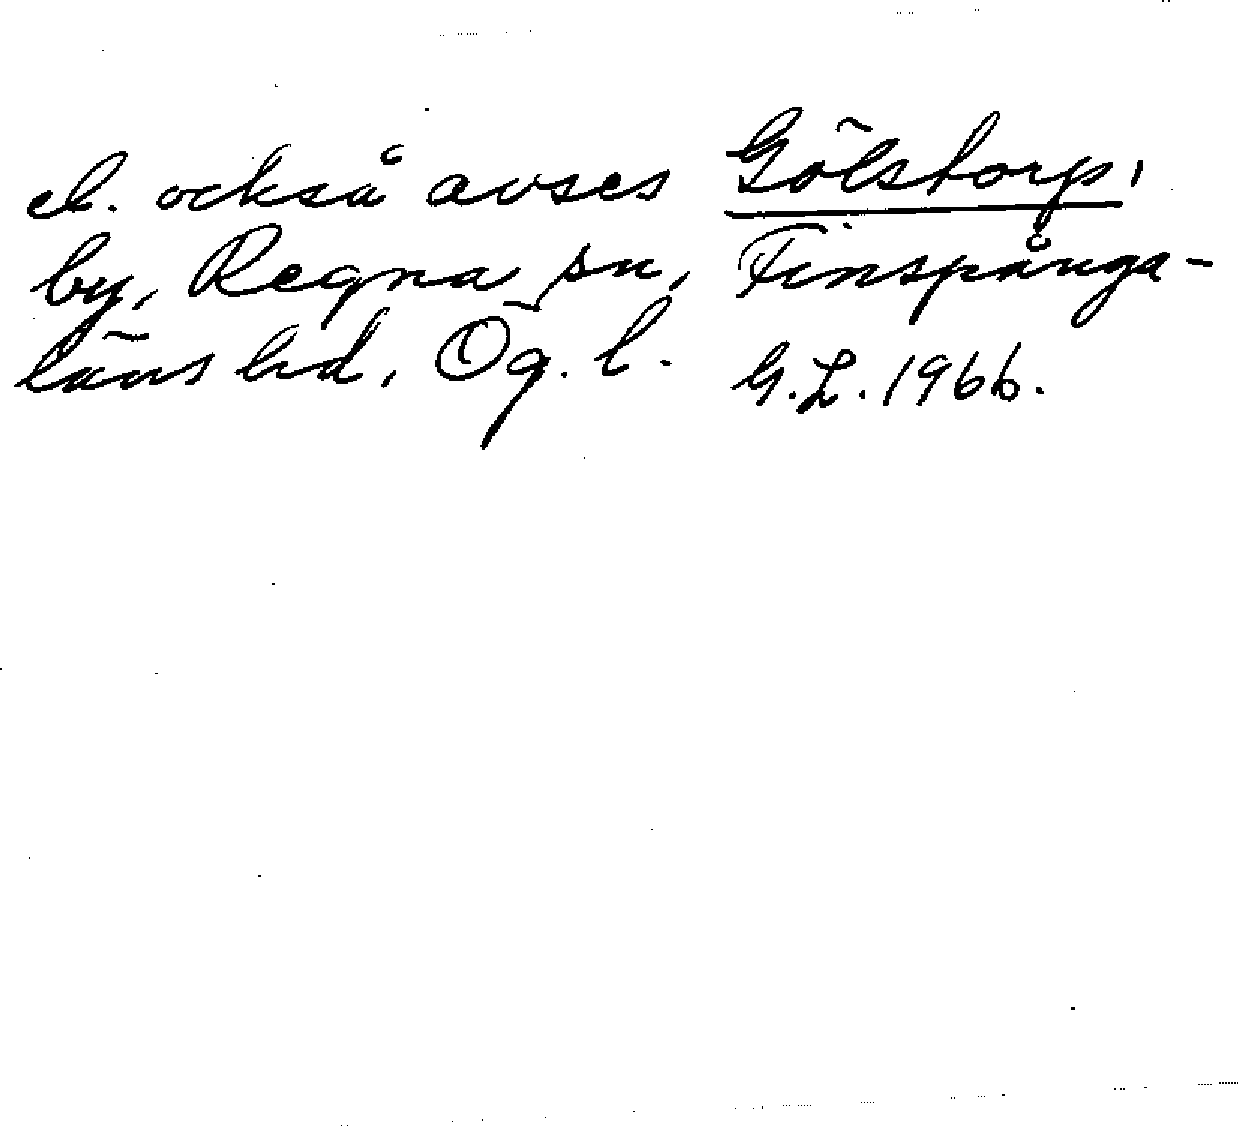 el. också avses Gölstorp,
by, Regna sn, Finspånga-
läns hd, Ög. l. G.L. 1966.